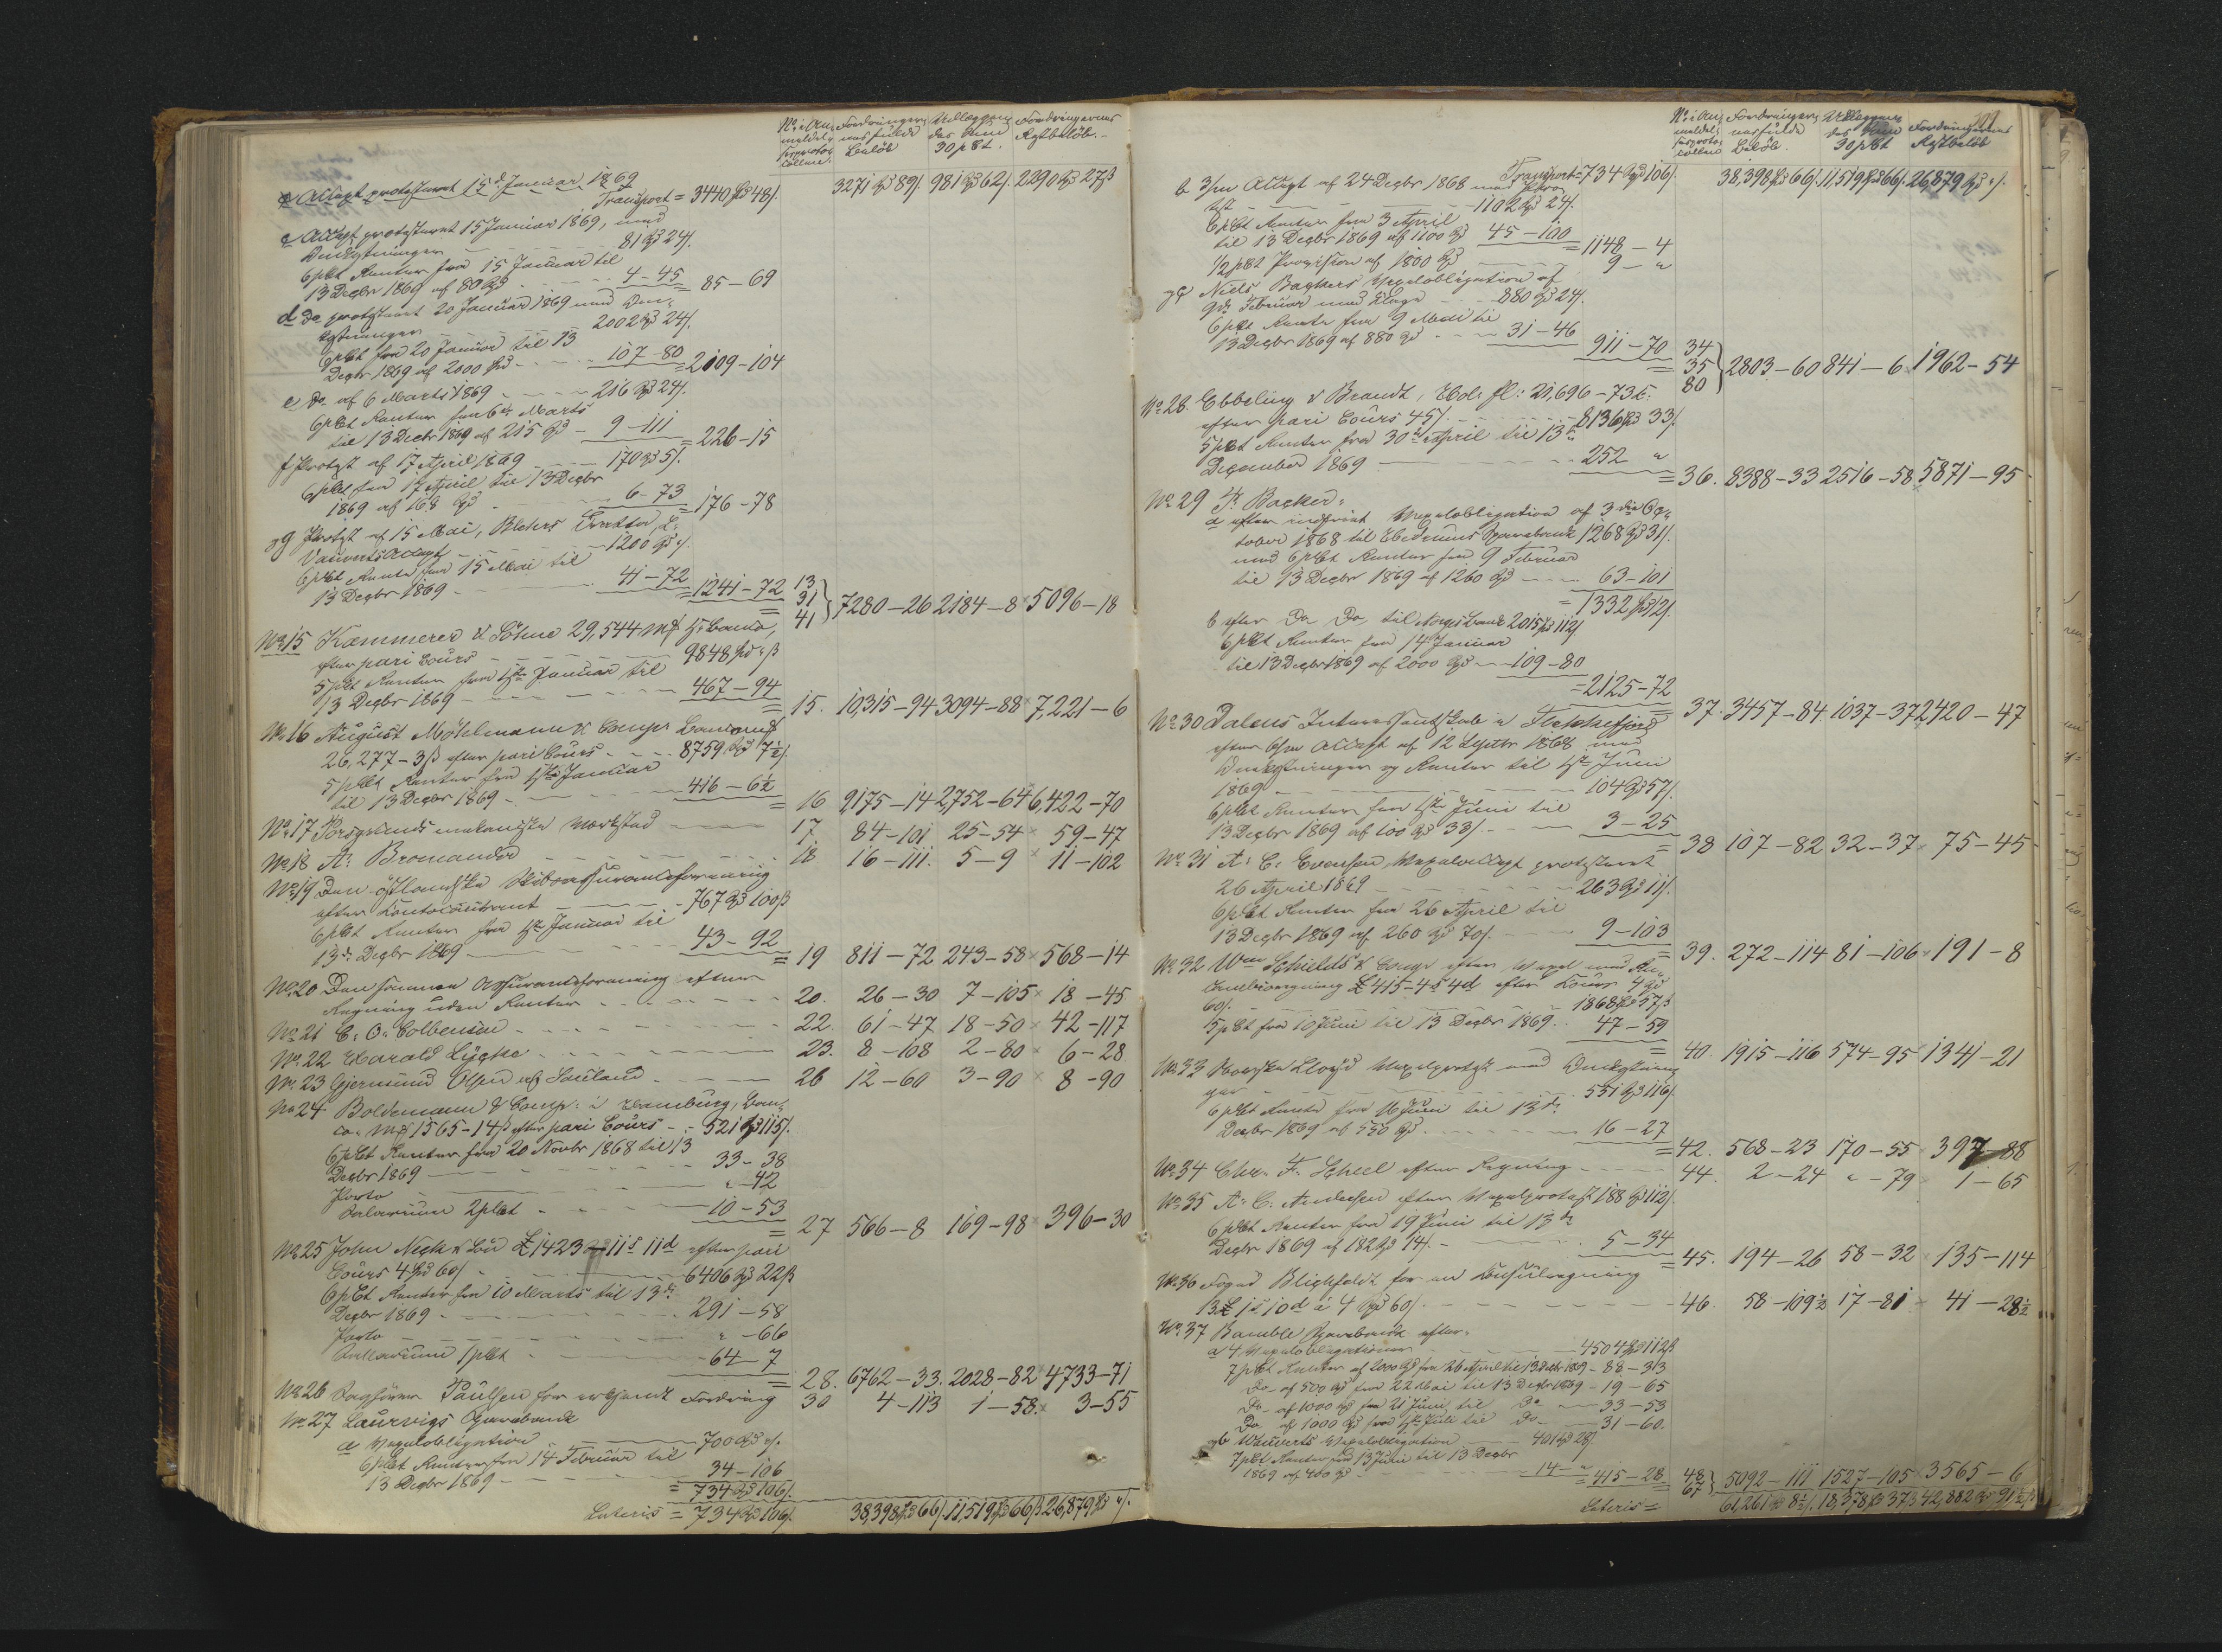 No i An- Fordringer- Udlæggen- Fordringernes
meldel- nes fulde des Sum Restbeløb.
sesproto- Beløb 30 pCt.
collen.
c Accept protesteret 15de Januar 1869
Transport = 3440 Spd 48 ß. 3271 Spd 89 ß. 981 Spd 62 ß. 2290 Spd 27 ß
c Accept protesteret 15 Januar 1869, med
Omkostninger 81 Spd 24 ß.
6 pCt Renter fra 15 Januar til
13 Decbr 1869 af 80 Spd 4-45 = 85-69
d Do protesteret 20 Januar 1869 med Om-
kostninger 2002 Spd 24 ß.
6 pCt fra 20 Januar til 13
Decbr 1869 af 2000 Spd 107-80 = 2109-104
e Do af 6 Marts 1869 216 Spd 24 ß.
6 pCt Renter fra 6te Marts
til 13 Decbr 1869 af 215 Spd - 9-111 = 226-15
f Protest af 17 April 1869 170 Spd 5 ß.
6 pCt fra 17 April til 13 Decbr
1869 af 168 Spd 6-73 = 176-78
og g Protest af 15 Mai,
Accept 1200 Spd
6 pCt Rente fra 15 Mai til
13 Decbr 1869 41-72 = 1241-72 13
31
41 7280-26 2184-8 5096-18
No 15 Kæmmerer & Söhne 29,544 Mf Hb. Banco,
efter pari Cours 9848 Spd " ß
5 pCt Renter fra 1ste Januar til
13 Decbr 1869 467-94 = 15. 10,315-94 3094-88 7,221-6
No 16 August Möhlmann & Comp. Banco Mf
26,277-3 ß efter pari Cours 8759 Spd 7½ ß.
5 pCt Renter fra 1ste Januar
til 13 Decbr 1869 416-6½ = 16 9,175-14 2,752-64 6,422-70
No 17 Porsgrunds mekaniske Værksted 17 84-101 25-54 59-47
No 18 A. Bromander 18 16-111. 5-9 11-102
No 19 Den østlandske Skibsassuranceforening
efter Contocourant 767 Spd 100 ß
6 pCt Renter fra 1ste Januar til
13de Decbr 1869 43-92 = 19 811-72 243-58 568-14
No 20 Den samme Assuranceforening efter
Regning uden Renter 20. 26-30 7-105 18-45
No 21 C. O. Colbensen 22. 61-47 18-50 42-117
No 22 Harald Lyche 23. 8-108 2-80 6-28
No 23 Gjermund Olsen af Sauland 26 12-60 3-90 8-90
No 24 Boldemann & Comp. i Hamburg, Ban-
co. Mf 1565-14 ß efter pari Cours 521 Spd 115 ß.
6 pCt Renter fra 20 Novbr 1868 til 13
Decbr 1869 33-38
Porto "-42
Salarium 2 pCt 10-53
= 27 566-8 169-98 396-30
No 25 John Neck & Son £ 1423-11 s 11 d efter pari
Cours 4 Spd 60 ß. 6406 Spd 22 ß
6 pCt Renter fra 10 Marts til 13de
Decbr 1869 291-58
Porto "-66
Salarium 1 pCt 64-7
= 28. 6762-33. 2028-82 4733-71
No 26 Sagfører Paulsen for erkjendt Fordring 30 4-113 1-58. 3-55
No 27 Laurvigs Sparebank
a Vexelobligation 700 Spd " ß.
6 pCt Renter fra 14 Februar til
13 Decbr 1869 34-106
= 734 Spd 106 ß.
Lateris = 734 Spd 106 ß. 38,398 Spd 66 ß. 11,519 Spd 66 ß 26,879 Spd " ß.
No i An- Fordringer- Udlæggen- Fordringernes
meldel- nes fulde des Sum Restbeløb
sesproto- Beløb. 30 pCt
collen
Transport = 734 Spd 106 ß. 38,398 Spd 66 ß. 11,519 Spd 66 ß. 26,879 Spd " ß.
b 3/m Accept af 24 Decbr 1868 med Pro-
test 1102 Spd 24 ß.
6 pCt Renter fra 3 April
til 13 Decbr 1869 af 1100 Spd 45-100 = 1148-4
½ pCt Provision af 1800 Spd 9-"
og c Niels Backers Vexelobligation af
9de Februar med Klage 880 Spd 24 ß.
6 pCt Rente fra 9 Mai til
13 Decbr 1869 af 880 Spd 31-46
911-70 34
35
80 2803-60 841-6 1962-54
No 28 Ebbeling & Brandt, Hol. fl: 21,696-73 c.
efter pari Cours 45 ß. 8136 Spd 33 ß.
5 pCt Renter fra 30te April til 13de
December 1869 252 "
= 36. 8388-33 2516-58 5871-95
No 29 F. Backer:
a efter indfriet Vexelobligation af 3die Oc-
tober 1868 til Sparebank 1268 Spd 31 ß.
med 6 pCt Renter fra 9 Februar
til 13 Decbr 1869 af 1260 Spd 63-101
= 1332 Spd 12 ß.
b efter Do Do til Norges Bank 2015 Spd 112 ß
6 pCt Renter fra 14 Januar
til 13 Decbr 1869 af 2000 Spd 109-80
= 2125-72
= 37. 3457-84 1037-37 2,420-47
No 30 Dalens Interessentskab i Flekkefjord
efter Accept af 12 Septbr 1868 med
Omkostninger og Renter til 1ste Juni
1869 104 Spd 57 ß.
6 pCt Renter fra 1ste Juni til
13 Decbr 1869 af 100 Spd 33 ß. 3-25
= 38 107-82 32-37 75-45
No 31 A. C. Evensen, Vexelaccept protesteret
26 April 1869 263 Spd 11 ß.
6 pCt Renter fra 26 April til
13 Decbr 1869 af 260 Spd 70 ß. 9-103
= 39. 272-114 81-106 191-8
No 32 Wm Schields & Comp. efter Vexel med Re-
£ 415-4 s 4 d efter Cours 4 Spd
60 ß. 1868 Spd 57 ß
5 pCt fra 10 Juni til 13 Decbr 1869. 47-59
= 40. 1915-116 574-95 1341-21
No 33 Norske Lloyd Vexelprotest med Omkostnin-
ger 551 Spd 116 ß.
6 pCt Rente fra 16 Juni til 13de
Decbr 1869 af 550 Spd 16-27
= 42. 568-23 170-55 397-88
No 34 Chr. F. Scheel efter Regning 44. 2-24 "-79 1-65
No 35 A. C. Andersen efter Vexelprotest 188 Spd 112 ß.
6 pCt Renter fra 19 Juni til 13de
Decbr 1869 af 182 Spd 14 ß. 5-34
= 45. 194-26 58-32 135-114
No 36 Foged Blichfeldt for en Konsulregning
13 £ 1 s 10 d à 4 Spd 60 ß. 46. 58-109½ 17-81 41-28½
No 37 Bamble Sparebank efter:
a 4 Vexelobligationer 4504 Spd 112 ß
7 pCt Renter af 2000 Spd fra 26 April til 13 Decbr 1869 - 88-313
Do af 500 Spd fra 22 Mai til 13 Decbr 1869 - 19-65
Do af 1000 Spd fra 21 Juni til Do 33-53
Do af 1000 Spd fra 1ste Juli til Do 31-60.
og b Vexelobligation 401 Spd 28 ß.
7 pCt Renter fra 13 Juni til 13 Decbr
1869 af 400 Spd 14-"
= 415-28 48
67 5092-111 1527-105 3565-6
Lateris = 61,261 Spd 8½ ß. 18,378 Spd 37 ß 42,882 Spd 91½ ß